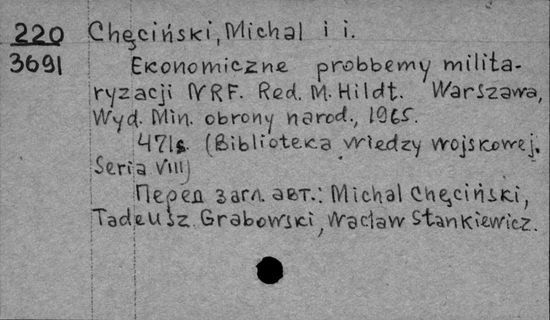 220 Chęciński, Michal i i.
3691 Ekonomiczne probbemy milita-
ryzacji NRF. Red. M. Hildt. Warszawa,
Wyd. Min. obrony narod., 1965.
471s. (Biblioteka wiedzy wojskowej.
Seria VIII)
Перед загл. авт.: Michal Chęciński,
Tadeusz Grabowski, Wacław Stankiewicz.